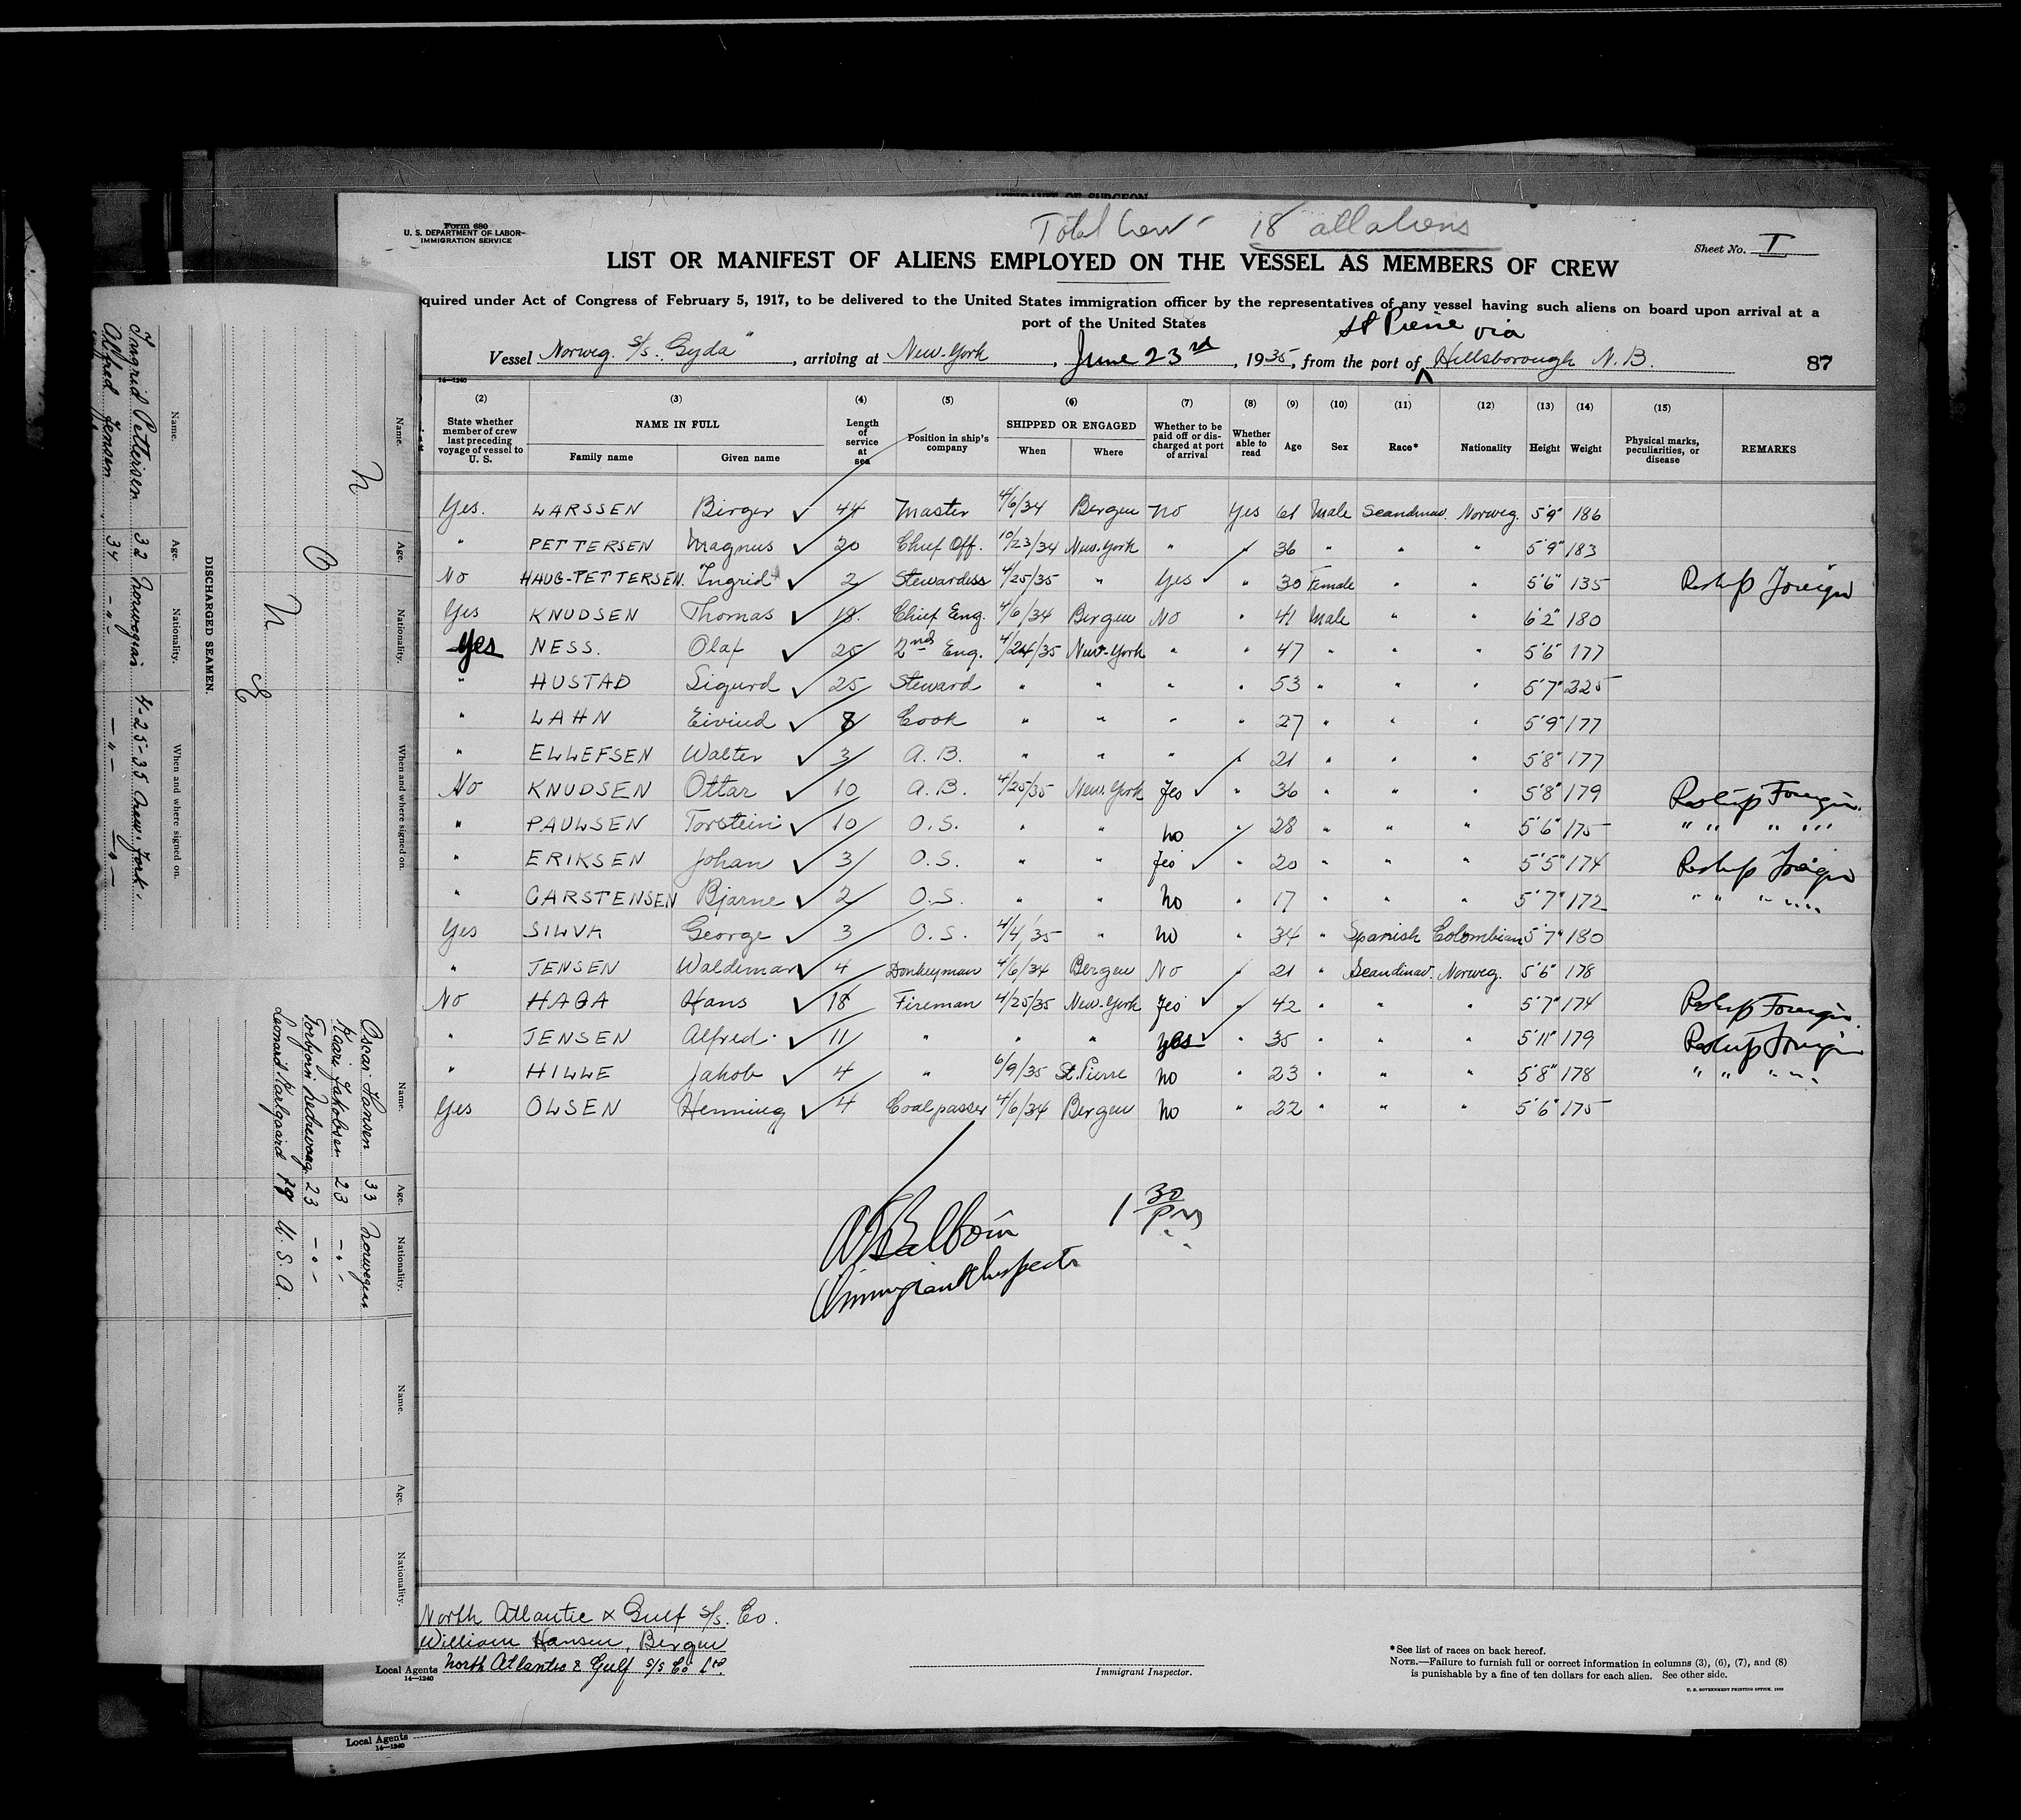 AFFIDAVIT OF SURGEON
Form 680
U. S. DEPARTMENT OF LABOR
IMMIGRATION SERVICE
Total Crew - 18 all aliens
Sheet No. I
LIST OR MANIFEST OF ALIENS EMPLOYED ON THE VESSEL AS MEMBERS OF CREW
quired under Act of Congress of February 5, 1917, to be delivered to the United States immigration officer by the representatives of any vessel having such aliens on board upon arrival at a
port of the United States
St Pierre via
Vessel Norweg. S/s. Gyda", arriving at New-York, June 23rd, 1935, from the port of Hillsborough N.B. 87
14—1240
(2) (3) (4) (5) (6) (7) (8) (9) (10) (11) (12) (13) (14) (15)
State whether member of crew last preceding voyage of vessel to U. S. NAME IN FULL Family name Given name Length of service at sea Position in ship's company SHIPPED OR ENGAGED When Where Whether to be paid off or discharged at port of arrival Whether able to read Age Sex Race* Nationality Height Weight Physical marks, peculiarities, or disease REMARKS
Yes. LARSSEN Birger ✓ 44 Master 4/6/34 Bergen No Yes 61 Male Scandinav. Norweg. 5'9" 186
" PETTERSEN Magnus ✓ 20 Chief Off. 10/23/34 New-York " " 36 " " " 5'9" 183
No HAUG-PETTERSEN. Ingrid ✓ 2 Stewardess 4/25/35 " Yes ✓ " 30 Female " " 5'6" 135 Reship Foreign
Yes KNUDSEN Thomas ✓ 18. Chief Eng. 4/6/34 Bergen No " 41 Male " " 6'2" 180
Yes NESS. Olaf ✓ 25 2nd Eng. 4/24/35 New-York " " 47 " " " 5'6" 177
" HUSTAD Sigurd ✓ 25 Steward " " " " 53 " " " 5'7" 225
" LAHN Eivind ✓ 8 Cook " " " " 27 " " " 5'9" 177
" ELLEFSEN Walter ✓ 3 A. B. " " " " 21 " " " 5'8" 177
No KNUDSEN Ottar ✓ 10 A. B. 4/25/35 New-York Yes ✓ " 36 " " " 5'8" 179 Reship Foreign.
" PAULSEN Torstein ✓ 10 O.S. " " No " 28 " " " 5'6" 175 " " " "
" ERIKSEN Johan ✓ 3 O.S. " " Yes ✓ " 20 " " " 5'5" 174 Reship Foreign
" CARSTENSEN Bjarne ✓ 2 O.S. " " No " 17 " " " 5'7" 172 " " " "
Yes SILVA George ✓ 3 O.S. 4/4/35 " No " 34 " Spanish Colombian 5'7" 180
" JENSEN Waldemar ✓ 4 Donkeyman 4/6/34 Bergen No " 21 " Scandinav. Norweg. 5'6" 178
No HAGA Hans ✓ 18 Fireman 4/25/35 New-York Yes ✓ " 42 " " " 5'7" 174 Reship Foreign.
" JENSEN Alfred ✓ 11 " " " yes ✓ " 35 " " " 5'11" 179 Reship Foreign
" HILLE Jakob ✓ 4 " 6/9/35 St. Pierre No " 23 " " " 5'8" 178 " " " "
Yes OLSEN Henning ✓ 4 Coalpasser 4/6/34 Bergen No " 22 " " " 5'6" 175
1 30 PM
Immigrant Inspector
North Atlantic & Gulf S/s. Co.
William Hansen, Bergen
Local Agents North Atlantic & Gulf S/S Co Ltd.
14—1240
Immigrant Inspector.
*See list of races on back hereof.
NOTE.—Failure to furnish full or correct information in columns (3), (6), (7), and (8)
is punishable by a fine of ten dollars for each alien. See other side.
U. S. GOVERNMENT PRINTING OFFICE
Local Agents
14—1240
Name. Age. Nationality. When and where signed on.
N O N E
DISCHARGED SEAMEN.
Name. Age. Nationality. When and where signed on.
Ingrid Pettersen 32 Norwegian 4-25-35 New-York.
Alfred Jensen 34 - " - - " - - " -
Name. Age. Nationality. Name. Age. Nationality.
Oscar Hansen 33 Norwegian
Kaare Jakobsen 23 - " -
Torbjörn Nedrevaag 23 - " -
Leonard Karlgaard 19 U. S. A.